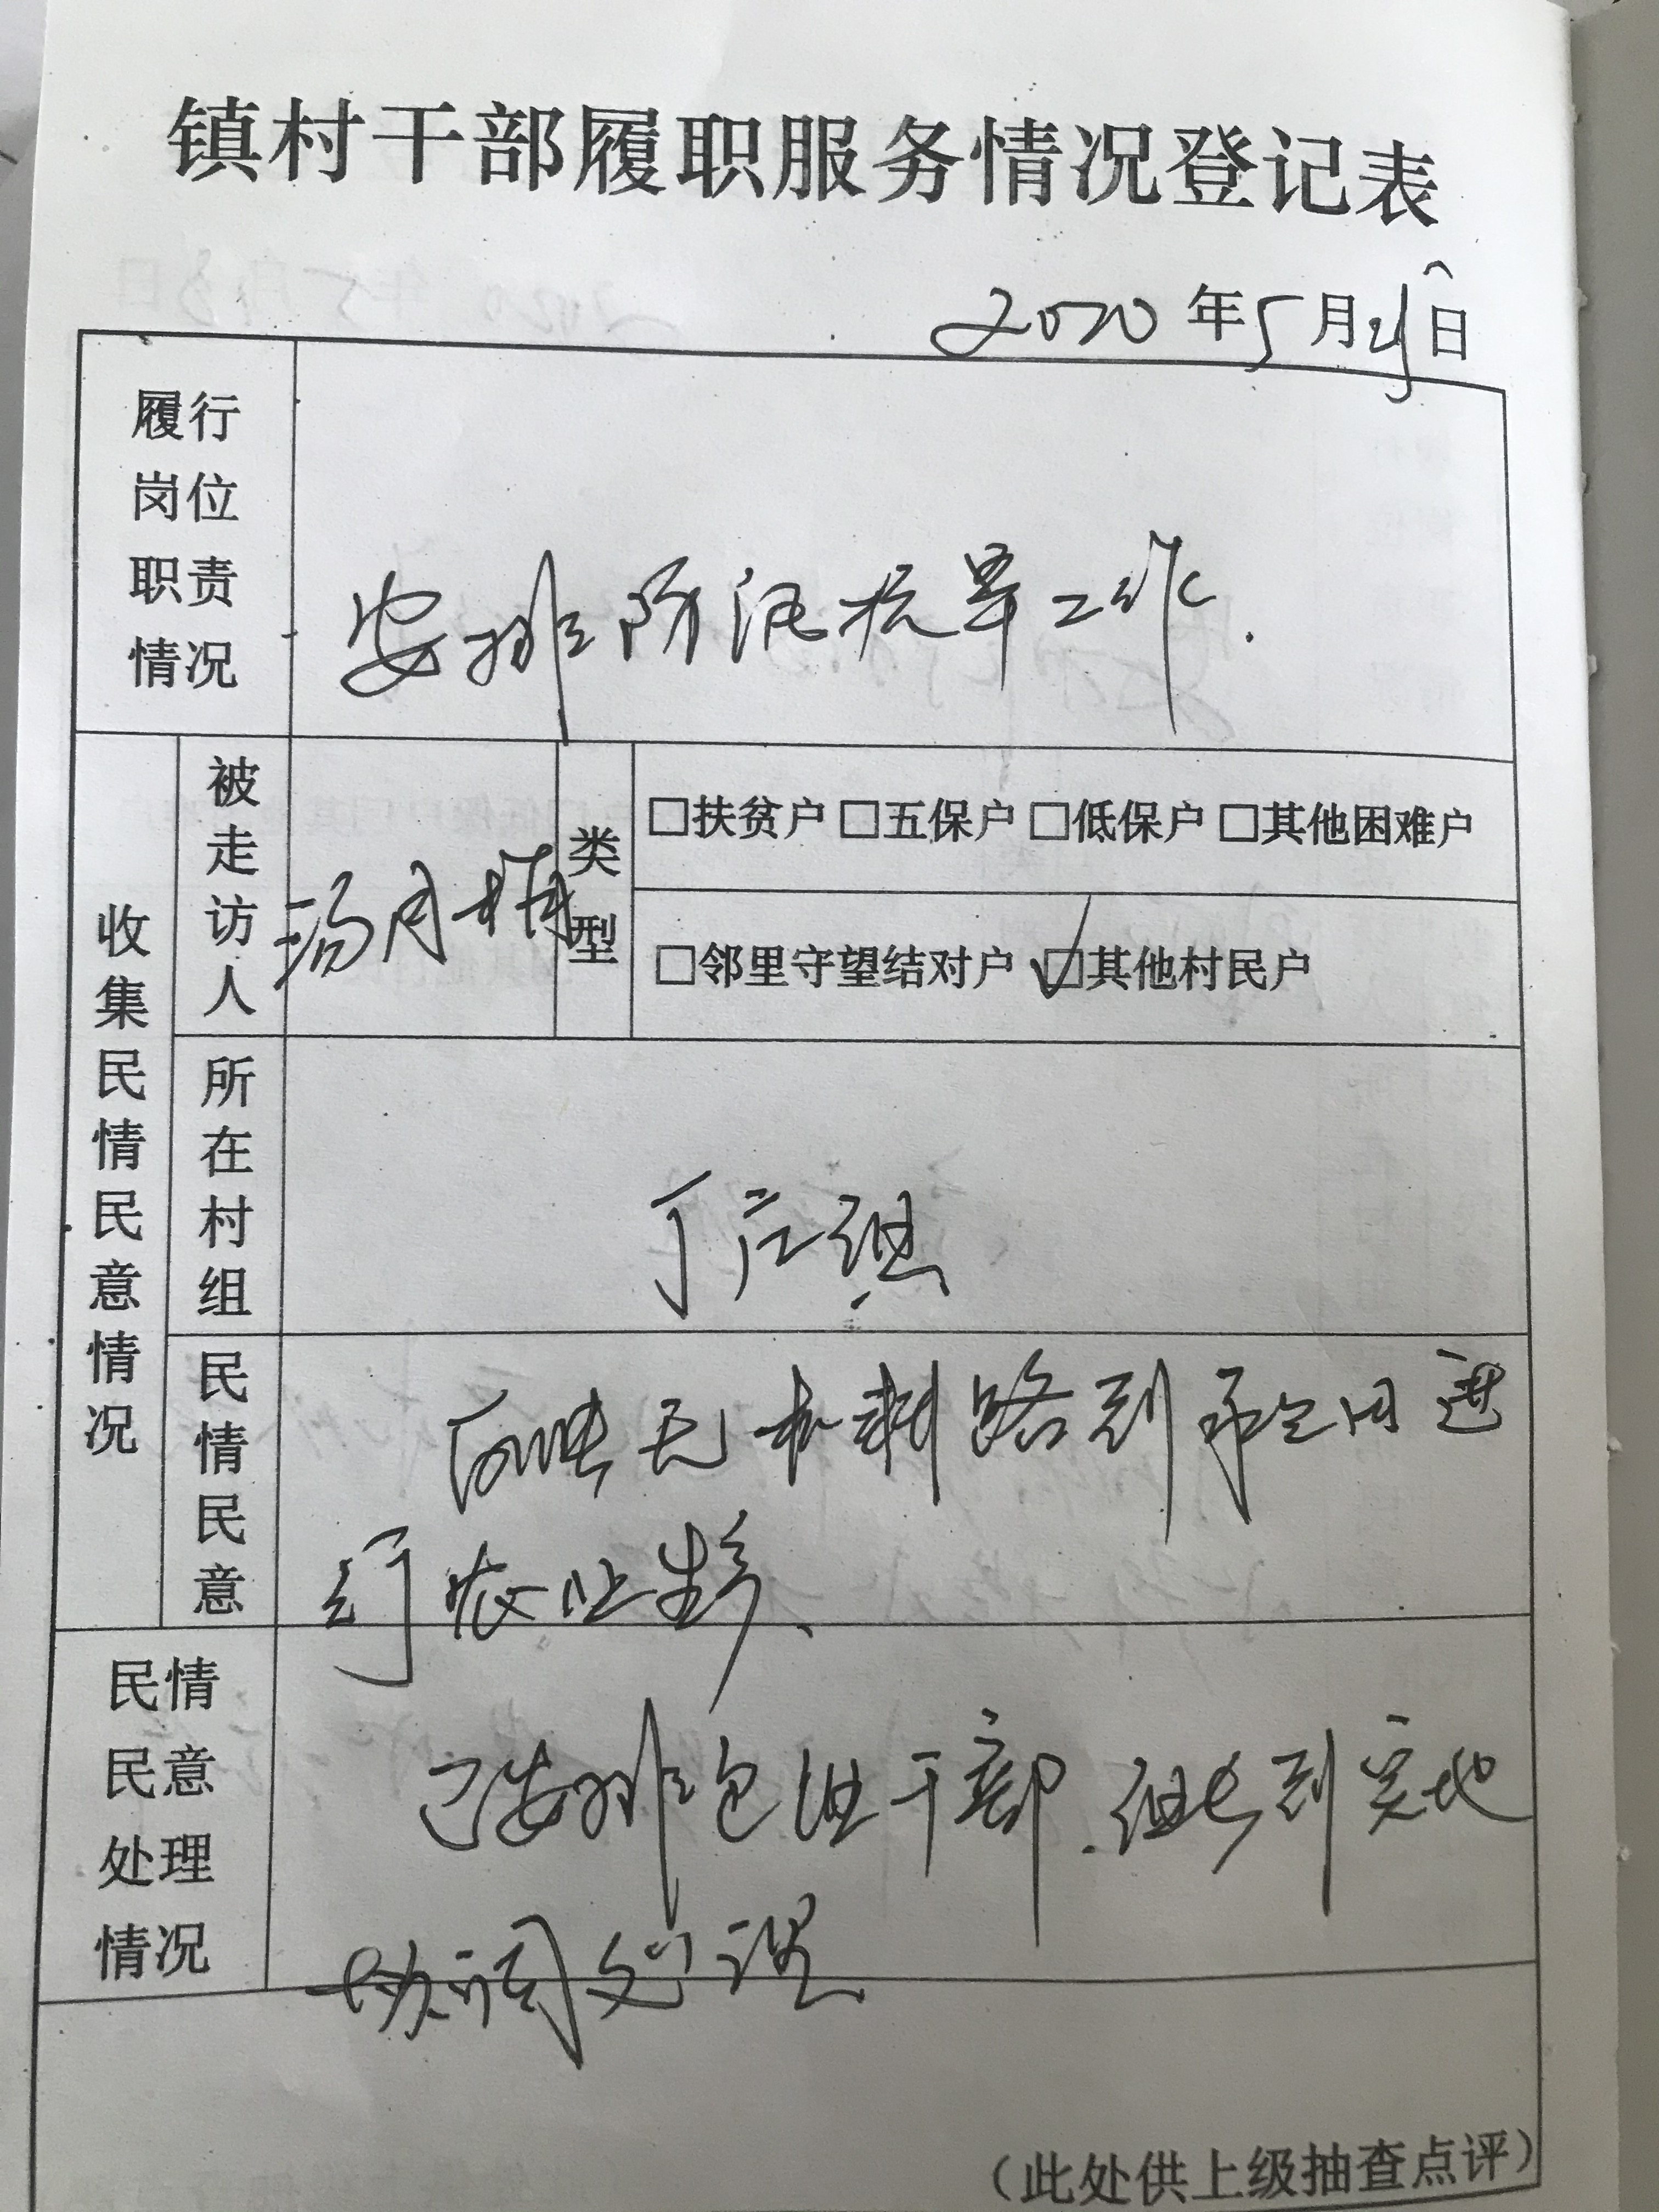 镇村干部履职服务情况登记表
2020年5月 日
履行岗位职责情况
安排防汛抗旱工作.
收集民情民意情况
被走访人
汤月
类型
□扶贫户 □五保户 □低保户 □其他困难户
□邻里守望结对户 ☑其他村民户
所在村组
丁庄组
民情民意
反映无机耕路到承包田进
行农业生产、
民情民意处理情况
已安排包组干部.组长到实地
协调处理
(此处供上级抽查点评)